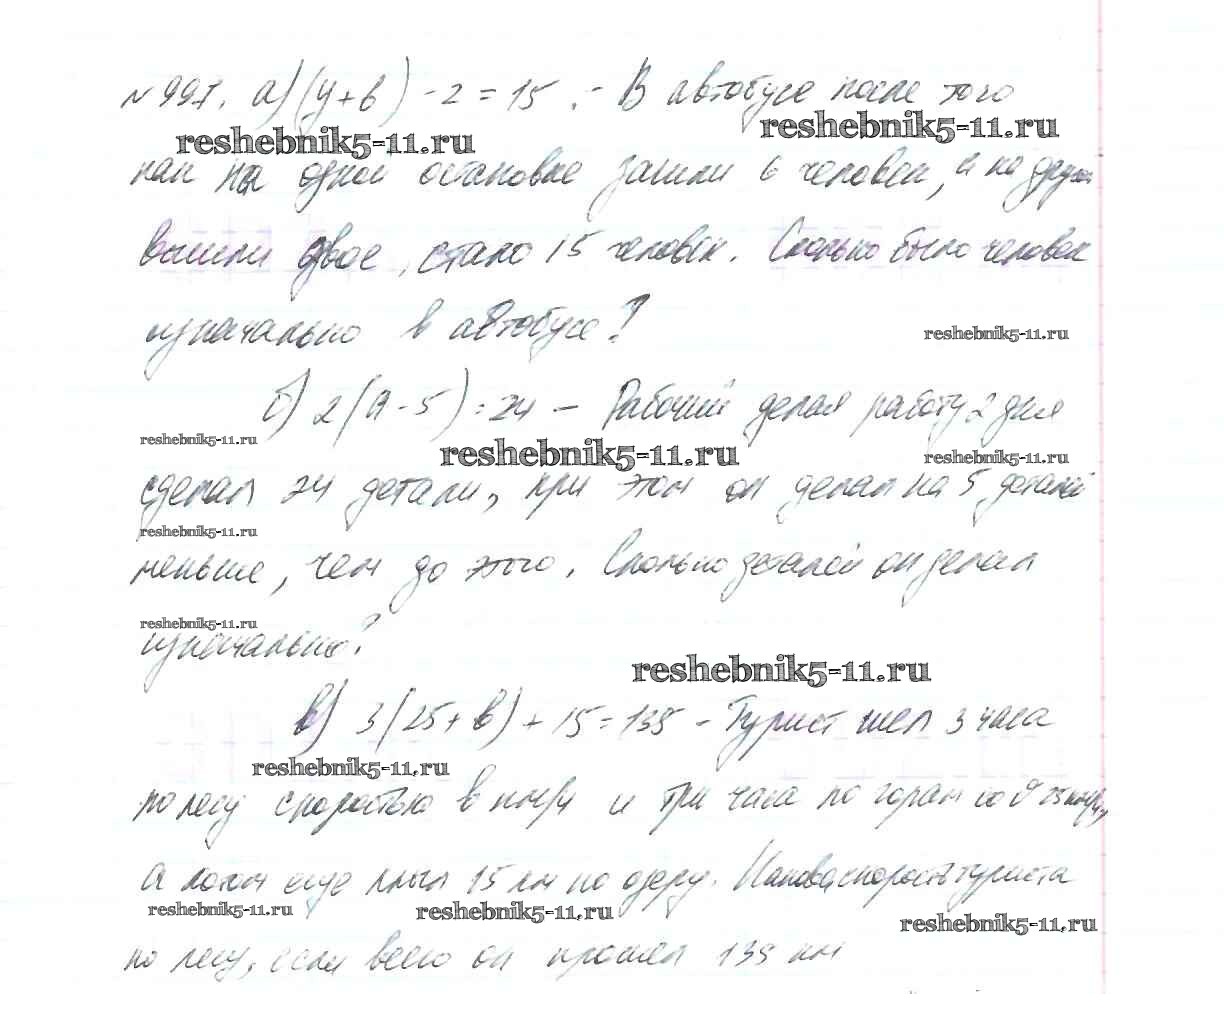 № 997. а) (у+6) - 2 = 15 :- В автобусе после того
reshebnik5-11.ru reshebnik5-11.ru
как на одной остановке зашли 6 человек, а на другой
вышли двое, стало 15 человек. Сколько было человек
изначально в автобусе?
reshebnik5-11.ru
б) 2(а - 5) = 24 - Рабочий делая работу 2 дня
reshebnik5-11.ru reshebnik5-11.ru reshebnik5-11.ru
сделал 24 детали, при этом он делал на 5 деталей
reshebnik5-11.ru
меньше, чем до этого. Сколько деталей он делал
reshebnik5-11.ru
изначально?
reshebnik5-11.ru
в) 3(25+в) + 15 = 135 - Турист шел 3 часа
reshebnik5-11.ru
по лесу скоростью в км/ч и три часа по горам со 25 км/ч,
а потом еще плыл 15 км по озеру. Какова скорость туриста
reshebnik5-11.ru reshebnik5-11.ru reshebnik5-11.ru
по лесу, если всего он прошел 135 км